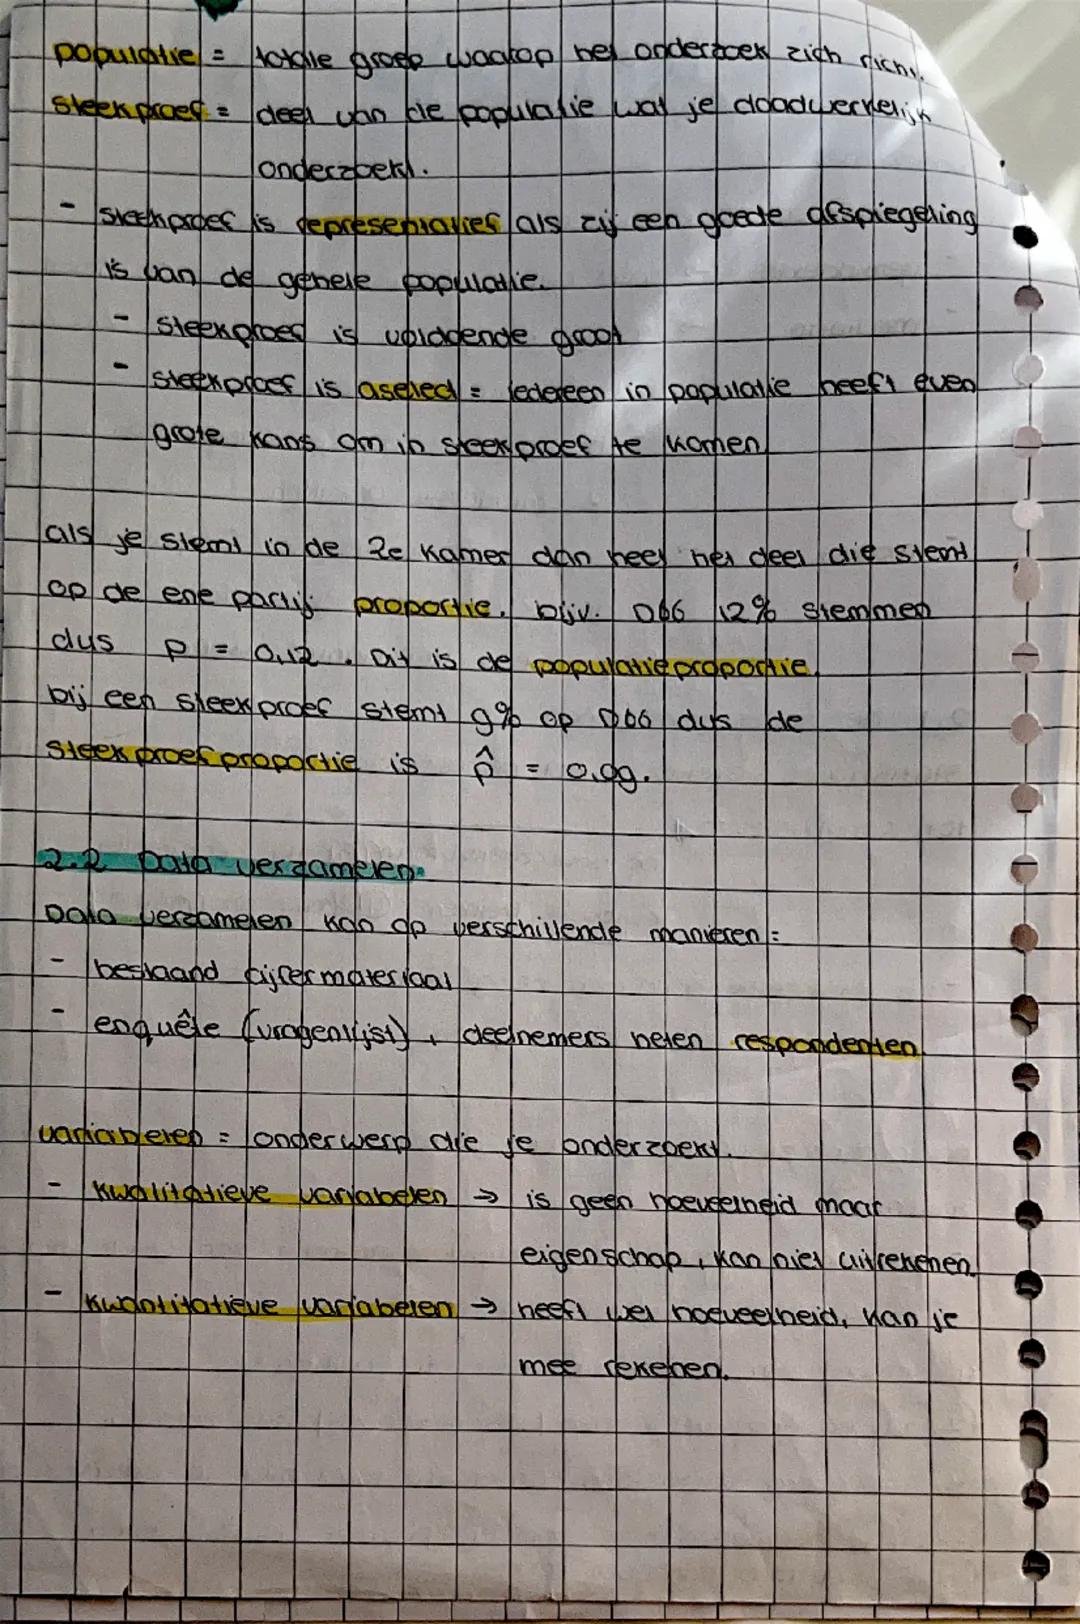 populatie = totale groep waarop het onderzoek zich richt.
steekproef = deel van de populatie wat je daadwerkelijk
onderzoekt.
- steekproef is representatief als zij een goede afspiegeling
is van de gehele populatie.
- steekproef is voldoende groot
- steekproef is aselect = iedereen in populatie heeft even
grote kans om in steekproef te komen
als je stemt in de 2e kamer dan heet het deel die stemt
op de ene partij proportie. bijv. D66 12% stemmen
dus p = 0,12. Dit is de populatieproportie.
bij een steekproef stemt 9% op D66 dus de
steekproefproportie is p̂ = 0,09.
2.2 Data verzamelen.
Data verzamelen kan op verschillende manieren:
- bestaand cijfermateriaal
- enquête (vragenlijst), deelnemers heten respondenten.
variabelen = onderwerp die je onderzoekt.
- kwalitatieve variabelen → is geen hoeveelheid maar
eigenschap, kan niet uitrekenen
- kwantitatieve variabelen → heeft wel hoeveelheid, kan je
mee rekenen.